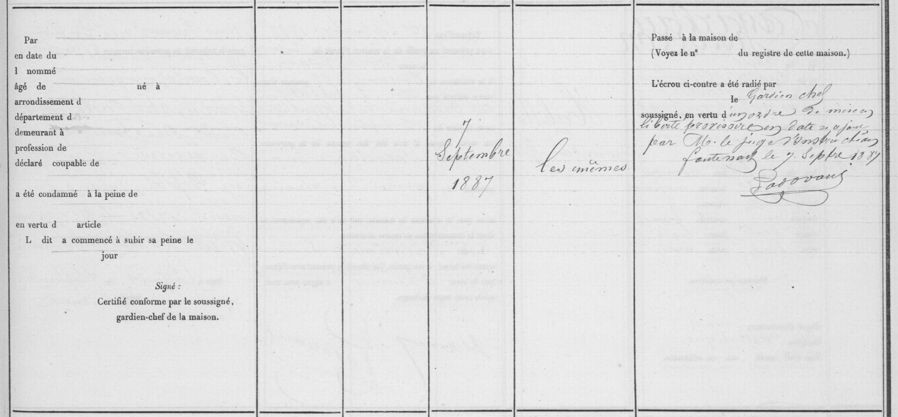 Par
en date du
l nommé
âgé de né à
arrondissement d
département d
demeurant à
profession de
déclaré coupable de
a été condamné à la peine de
en vertu d article
L dit a commencé à subir sa peine le
jour
Signé :
Certifié conforme par le soussigné,
gardien-chef de la maison.
7
Septembre
1887
les mêmes
Passé à la maison de
(Voyez le n° du registre de cette maison.)
L'écrou ci-contre a été radié par
le Gardien chef
soussigné, en vertu d'un ordre de mise en
liberté provisoire en date
par Mr le juge d'Instruction
le 7 Septbre 1887